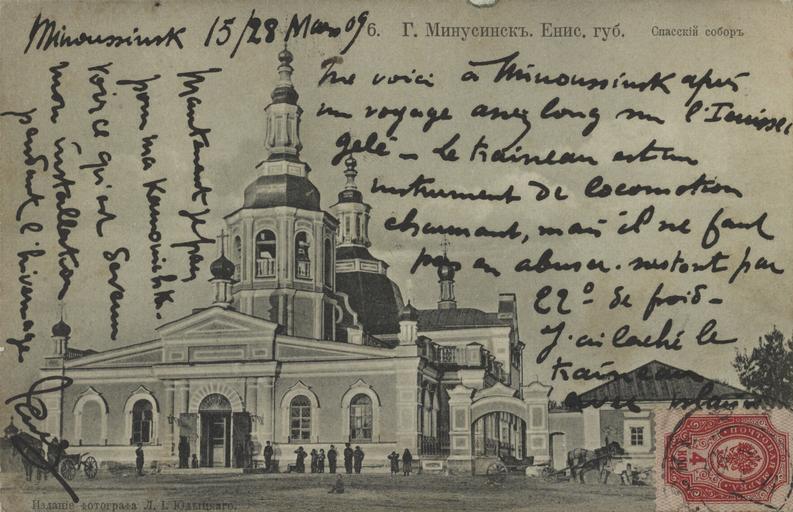 Minoussinsk 15/28 Mars 09
6. Г. Минусинскъ. Енис. губ. Спасскій соборъ
Me voici à Minoussinsk après
un voyage assez long sur l'Ienissei
gelé – Le traineau est un
instrument de locomotion
charmant, mais il ne faut
pas en abuser. surtout par
22° de froid –
J'ai laché le
traineau
avec
Maintenant je pars
pour ma
voir ce qu'est devenu
mon installation
pendant l'hivernage
Изданіе фотографа Л. І. Юдыцкаго.
ПОЧТОВАЯ МАРКА
4